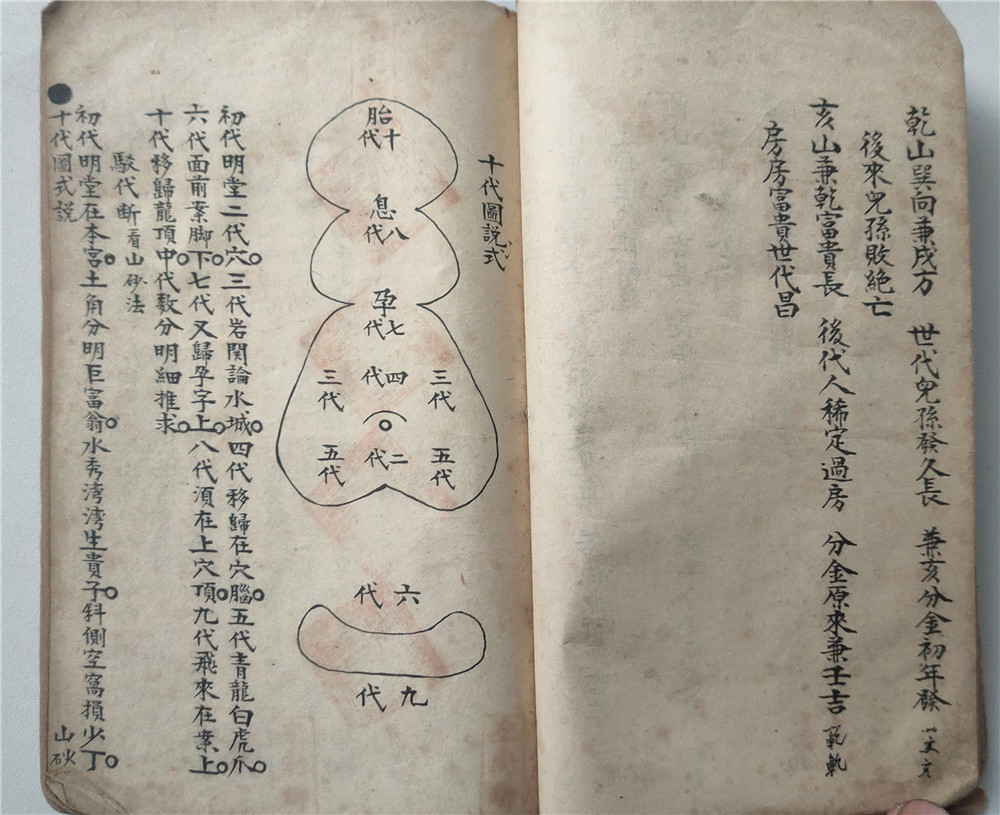 乾山巽向兼戌方 世代兒孫發久長 兼亥分金初年發
後來兒孫敗絕亡
亥山兼乾富貴長 後代人稀定過房 分金原來兼壬吉
房房富貴世代昌
十代圖說式
胎
十代
息
八代
孕
七代
三代 四代 三代
五代 二代 五代
六代
九代
初代明堂二代穴 三代岩関論水城 四代移歸在穴腦 五代青龍白虎爪
六代面前案脚下 七代又歸孕字上 八代湏在上穴頂 九代飛來在案上
十代移歸龍頂中 代数分明細推求
駁代断 看山砂法
初代明堂在本宮 土角分明巨富翁 水秀湾湾生貴子 斜側空窩損少丁
十代圖式說 山砂